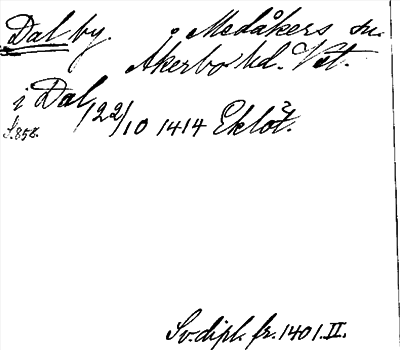 Dal by. Medåkers sn.
Åkerbo hd. Vst.
i Dal 22/10 1414 Eklöt.
S. 858.
Sv. dipl. fr. 1401. II.